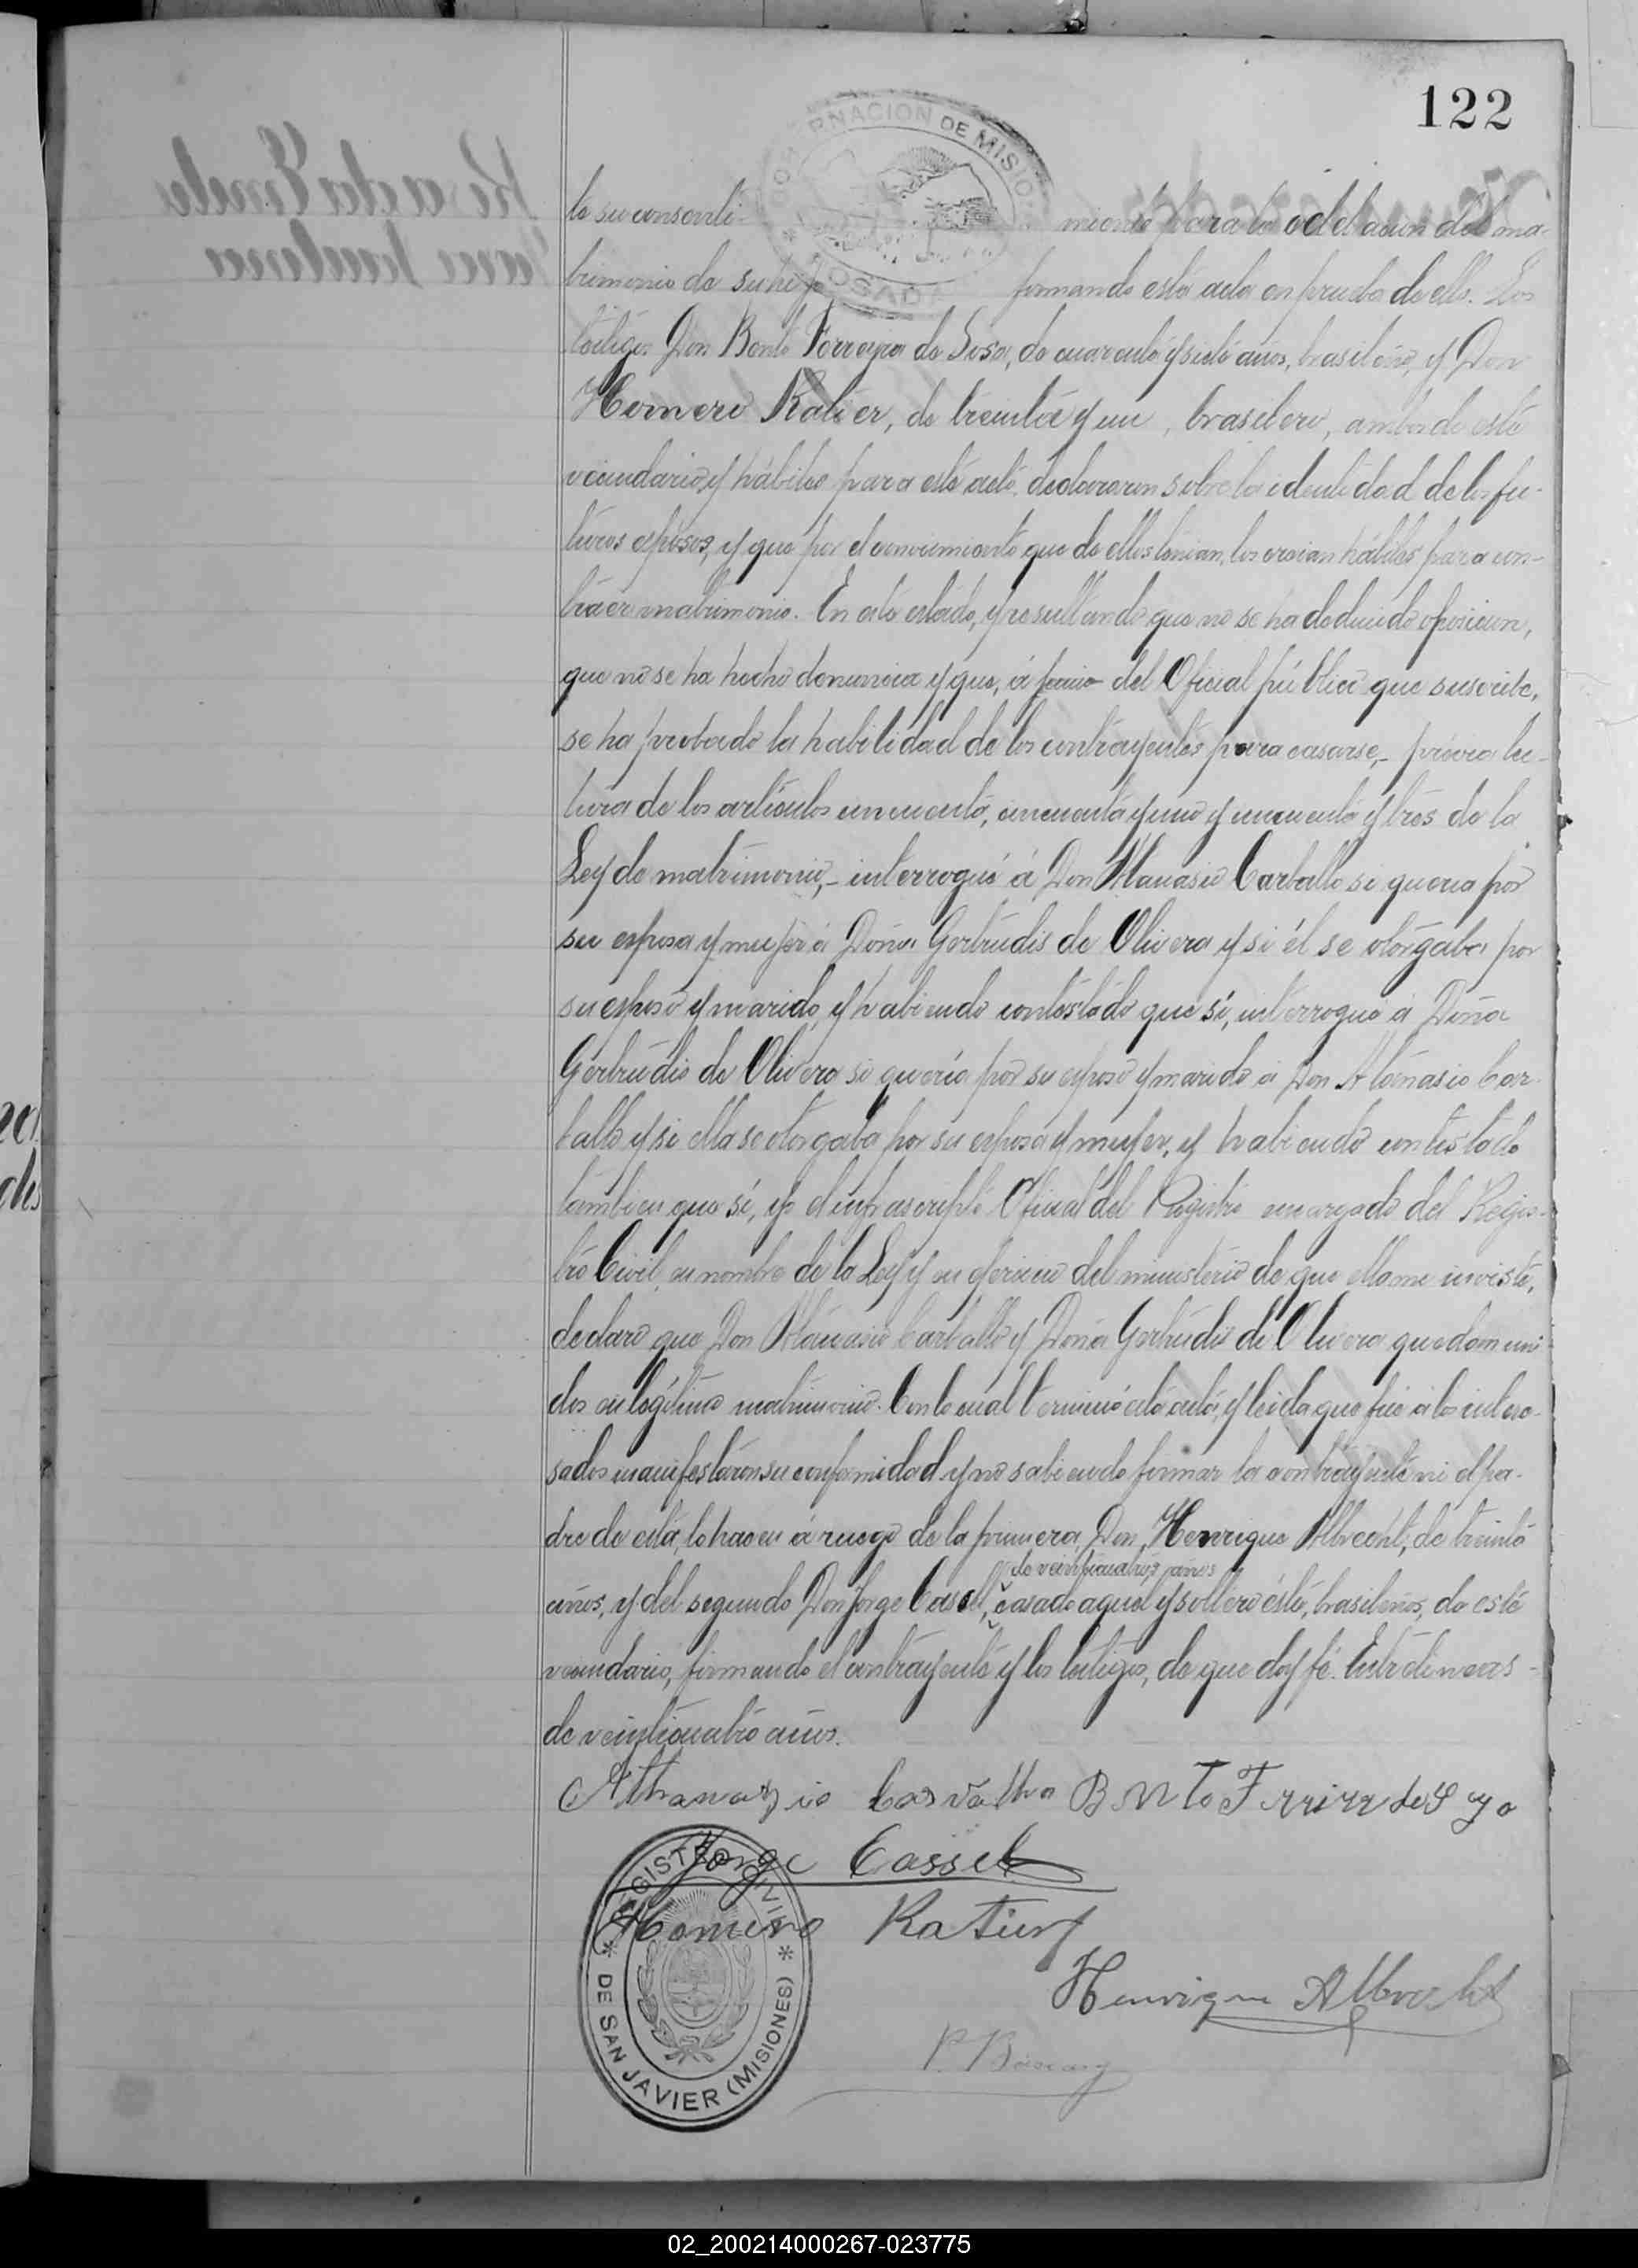 122
GOBERNACION DE MISIONES * POSADAS *
to su consenti- miento para la celebracion del ma-
trimonio de su hija firmando esta acta en prueba de ello. Los
testigos Don Bento Ferreyra de Sosa, de cuarenta y siete años, brasileño, y Don
Homero Katier, de treinta y un, brasilero, ambos de este
vecindario, y hábiles para este acto, declararon sobre la identidad de los fu-
turos esposos, y que por el conocimiento que de ellos tenian, los creian hábiles para con-
traer matrimonio. En este estado, y resultando que no se ha deducido oposicion,
que no se ha hecho denuncia y que, á juicio del Oficial público que suscribe,
se ha probado la habilidad de los contrayentes para casarse,- prévia lec-
tura de los artículos cincuenta, cincuenta y uno y cincuenta y tres de la
Ley de matrimonio,- interrogué á Don Atanasio Carballo si queria por
su esposa y mujer á Doña Gertrudis de Olivera y si él se otorgaba por
su esposo y marido, y habiendo contestado que sí, interrogué á Doña
Gertrudis de Olivera si quería por su esposo y marido á Don Atanasio Car-
ballo y si ella se otorgaba por su esposa y mujer, y habiendo contestado
tambien que sí, yo el infrascripto Oficial del Registro encargado del Regis-
tro Civil, en nombre de la Ley y en ejercicio del ministerio de que ella me inviste,
declaro que Don Atanasio Carballo y Doña Gertrudis de Olivera quedan uni-
dos en legítimo matrimonio. Con lo cual terminó este acto, y leida que fué á los intere-
sados manifestaron su conformidad y no sabiendo firmar la contrayente ni el pa-
dre de esta, lo hacen á ruego de la primera, Don Henrique Albrecht, de treinta
de veinticuatro años
años, y del segundo Don Jorge Cassel, casado aquel y soltero éste, brasileños, de este
vecindario, firmando el contrayente y los testigos, de que doy fé. Entre lineas-
de veinticuatro años.
Athanazio Carvalho Bento Ferrirr de Soyo
Jorge Cassel
Homero Katier
Henrique Albrecht
REGISTRO CIVIL * DE SAN JAVIER (MISIONES) *
02_200214000267-023775